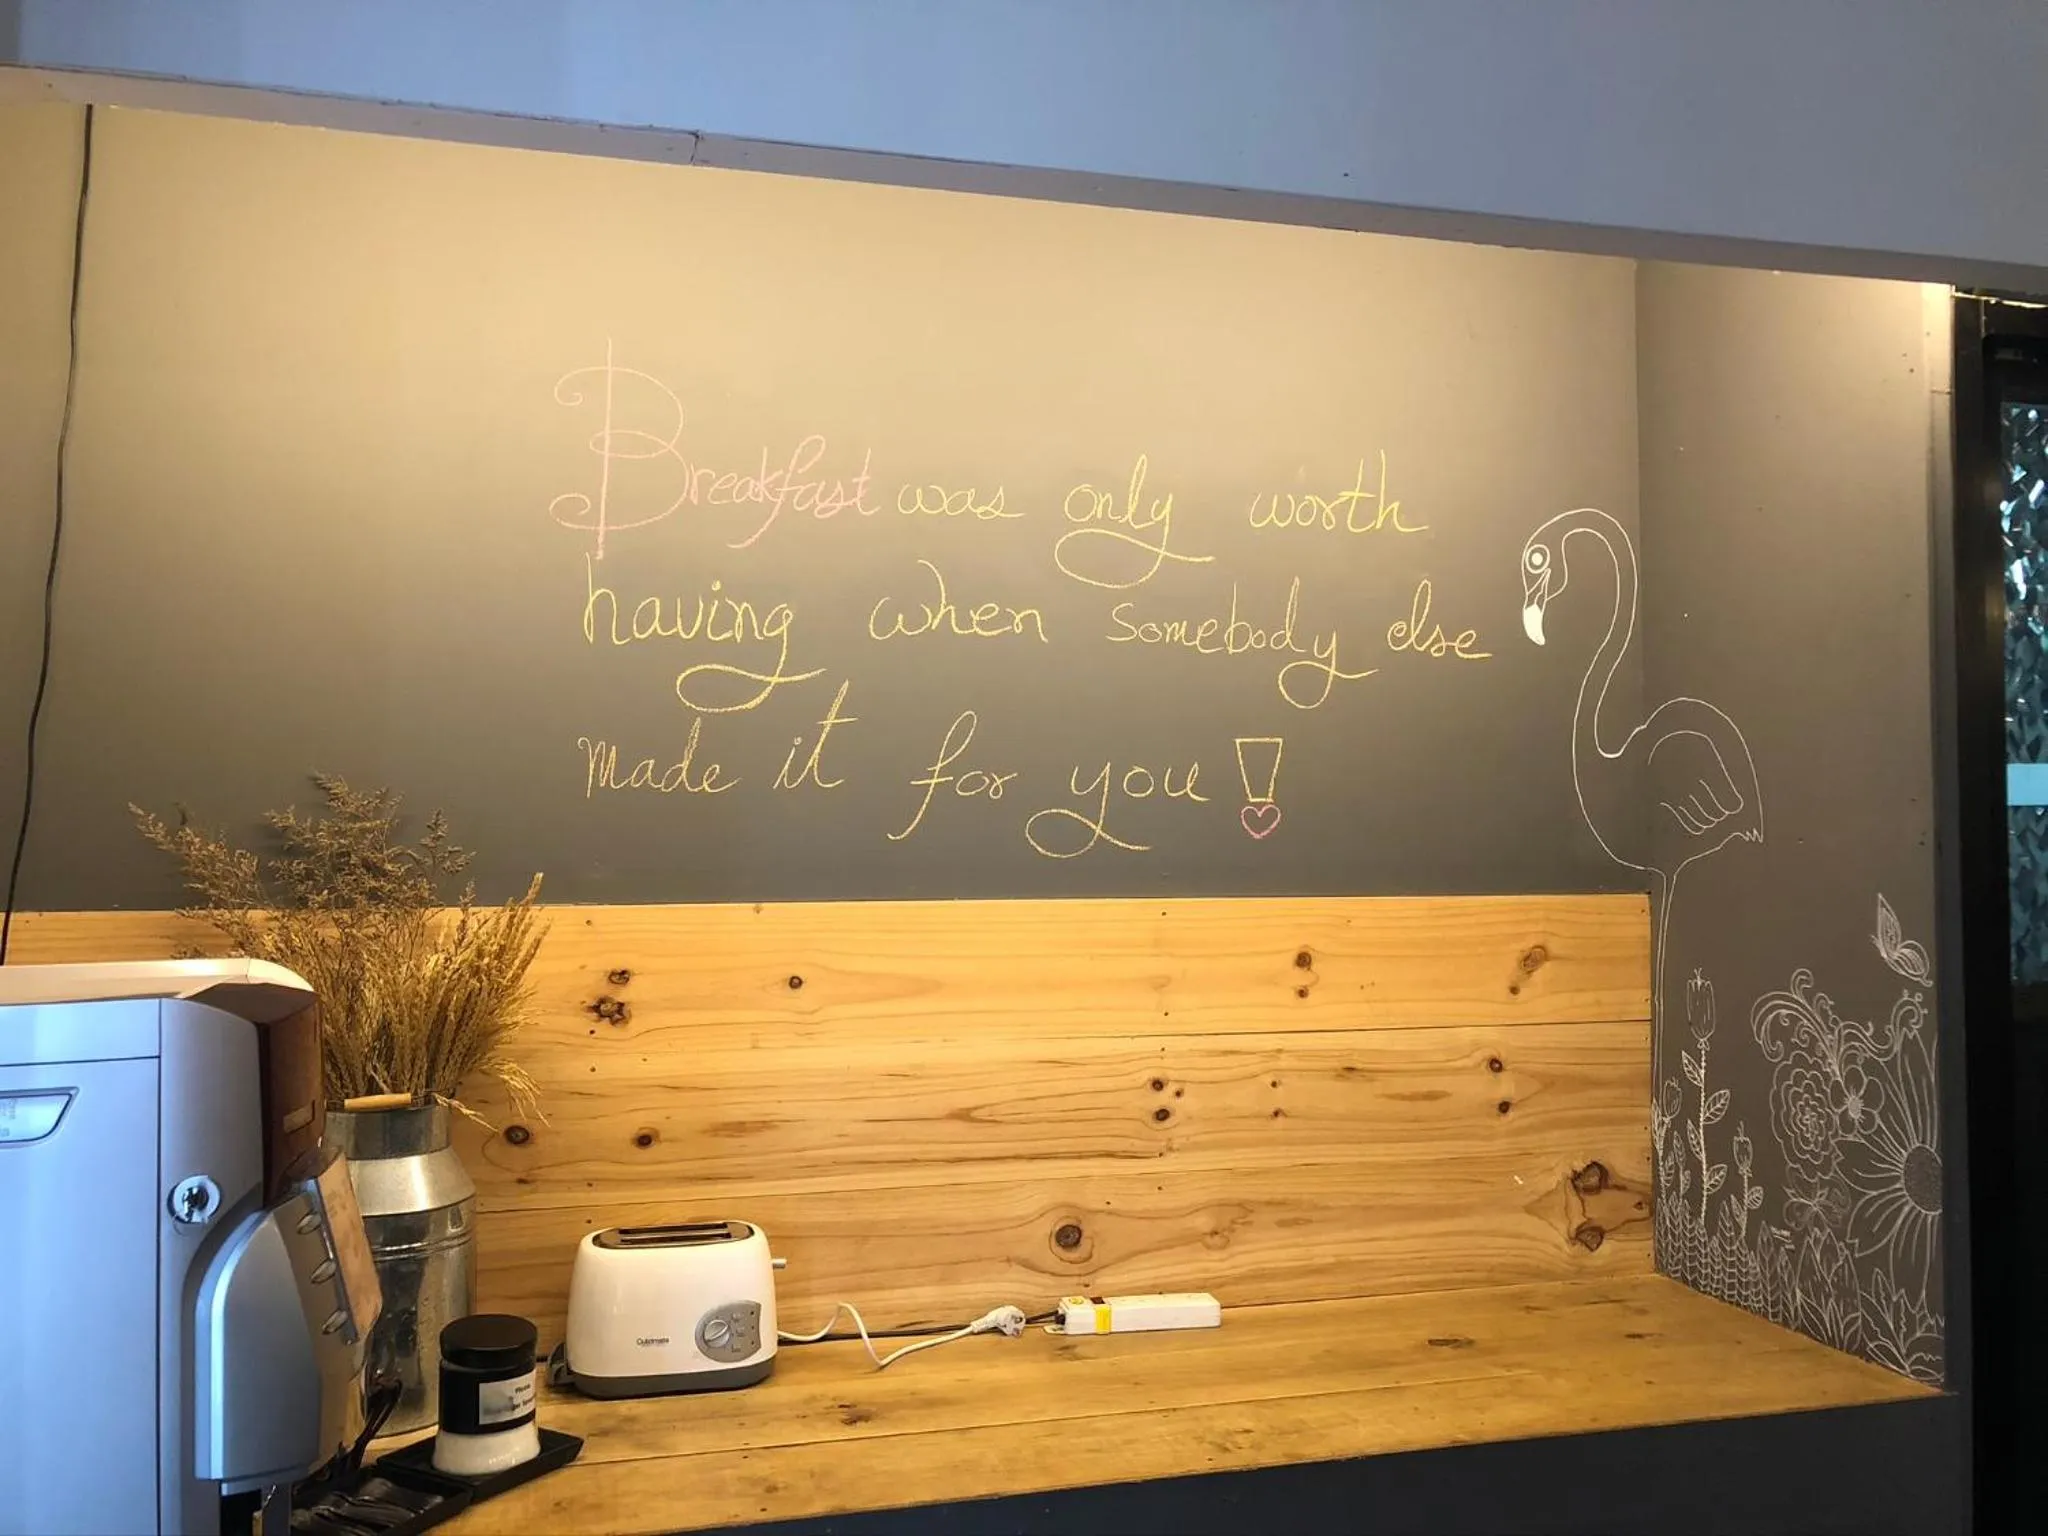 Breakfast was only worth
having when somebody else
made it for you!
Cuizimate